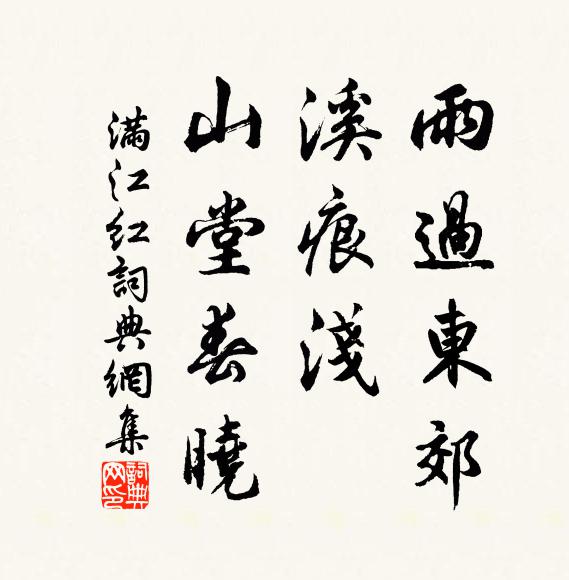 雨過東郊
溪痕淺
山堂春曉
滿江紅詞典網集
詞典网印